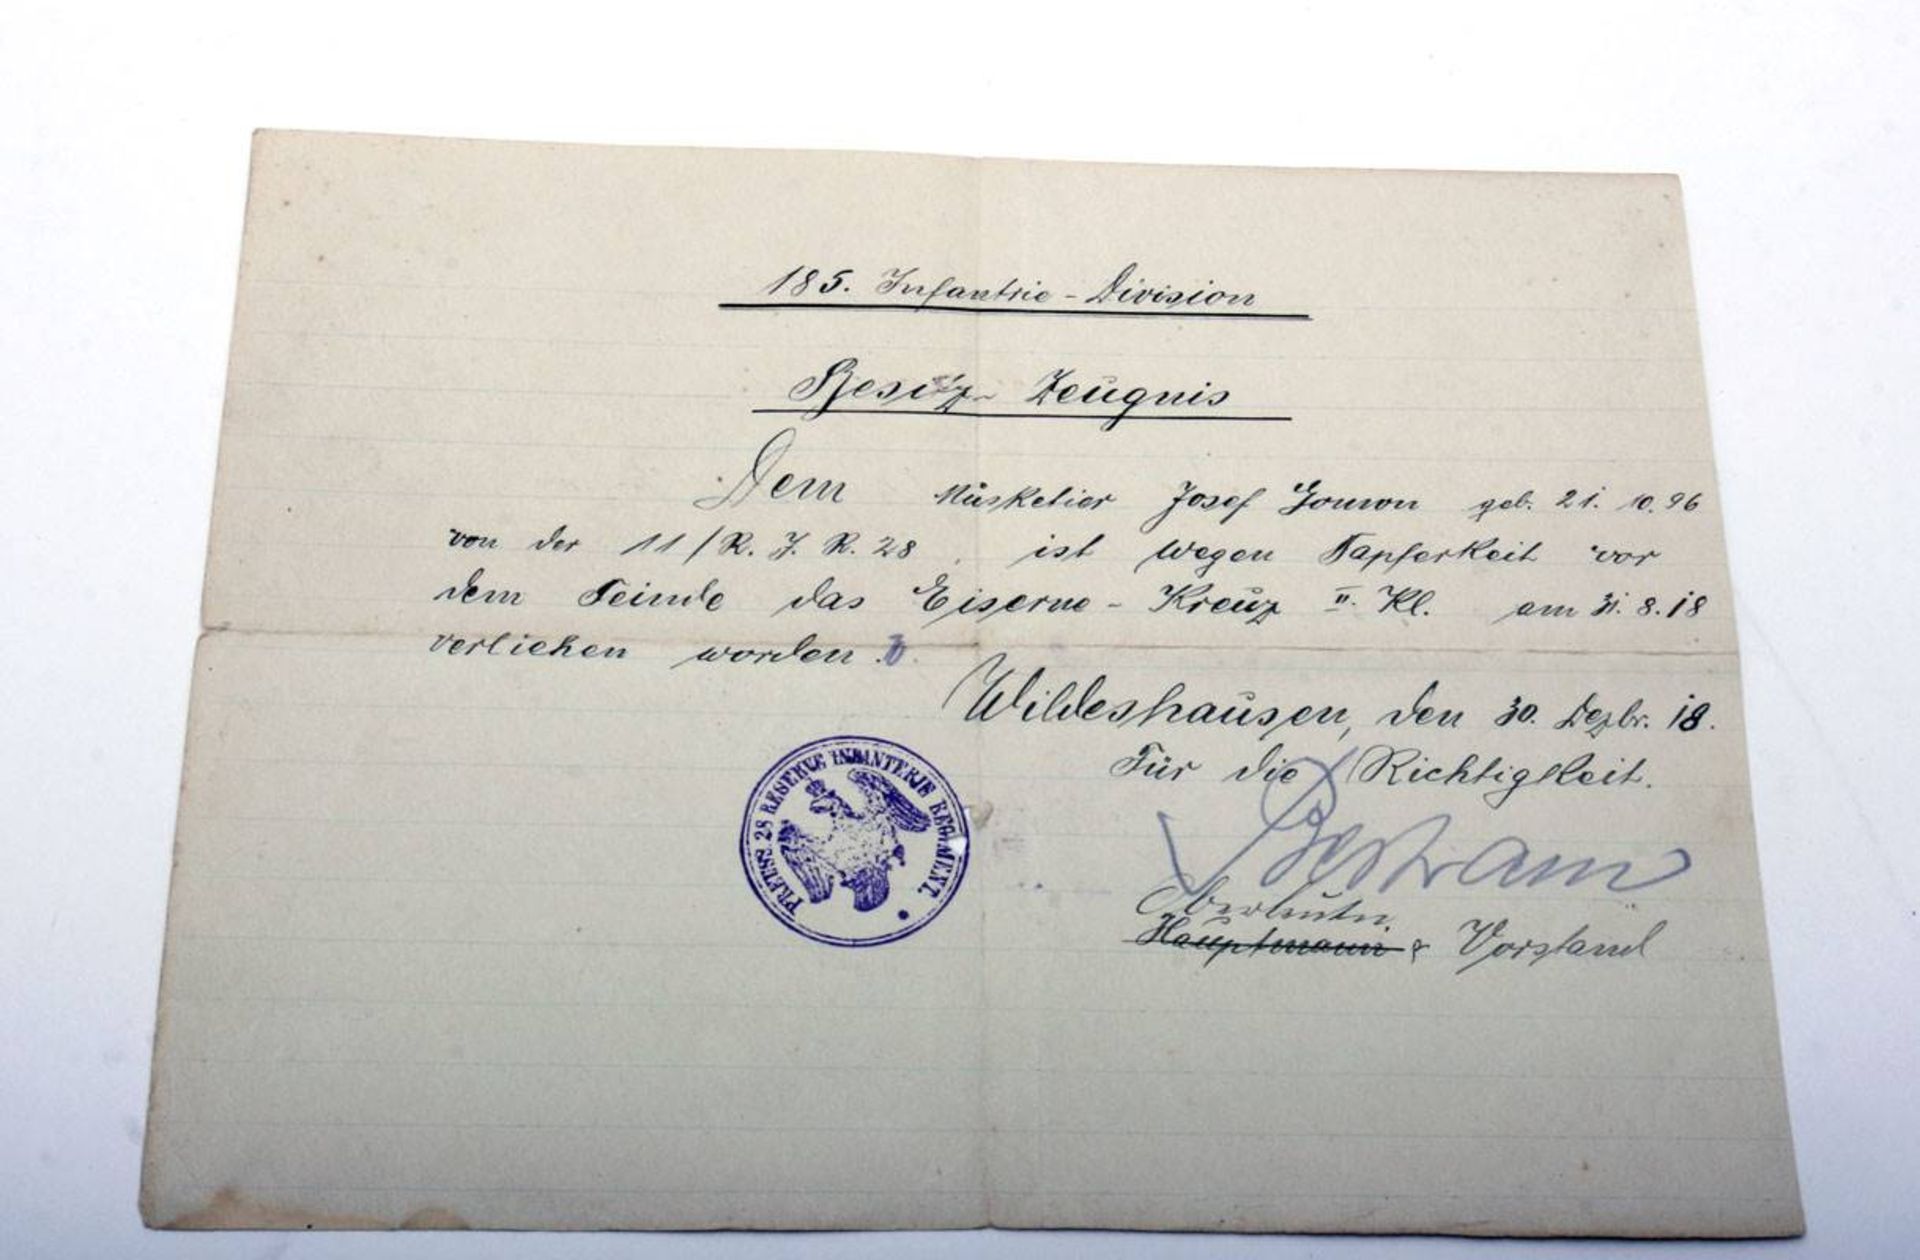 185. Infantrie-Division
Besitz-Zeugnis
Dem Musketier Josef geb. 21. 10. 96
von der 11/R. J. R. 28. ist wegen Tapferkeit vor
dem Feinde das Eiserne-Kreuz II. Kl. am 31. 8. 18
verliehen worden.
Wildeshausen, den 30. Dezbr. 18.
Für die Richtigkeit.
Bertram
Oberleutn.
Hauptmann & Vorstand
PREUSS 28 RESERVE INFANTERIE REGIMENT.